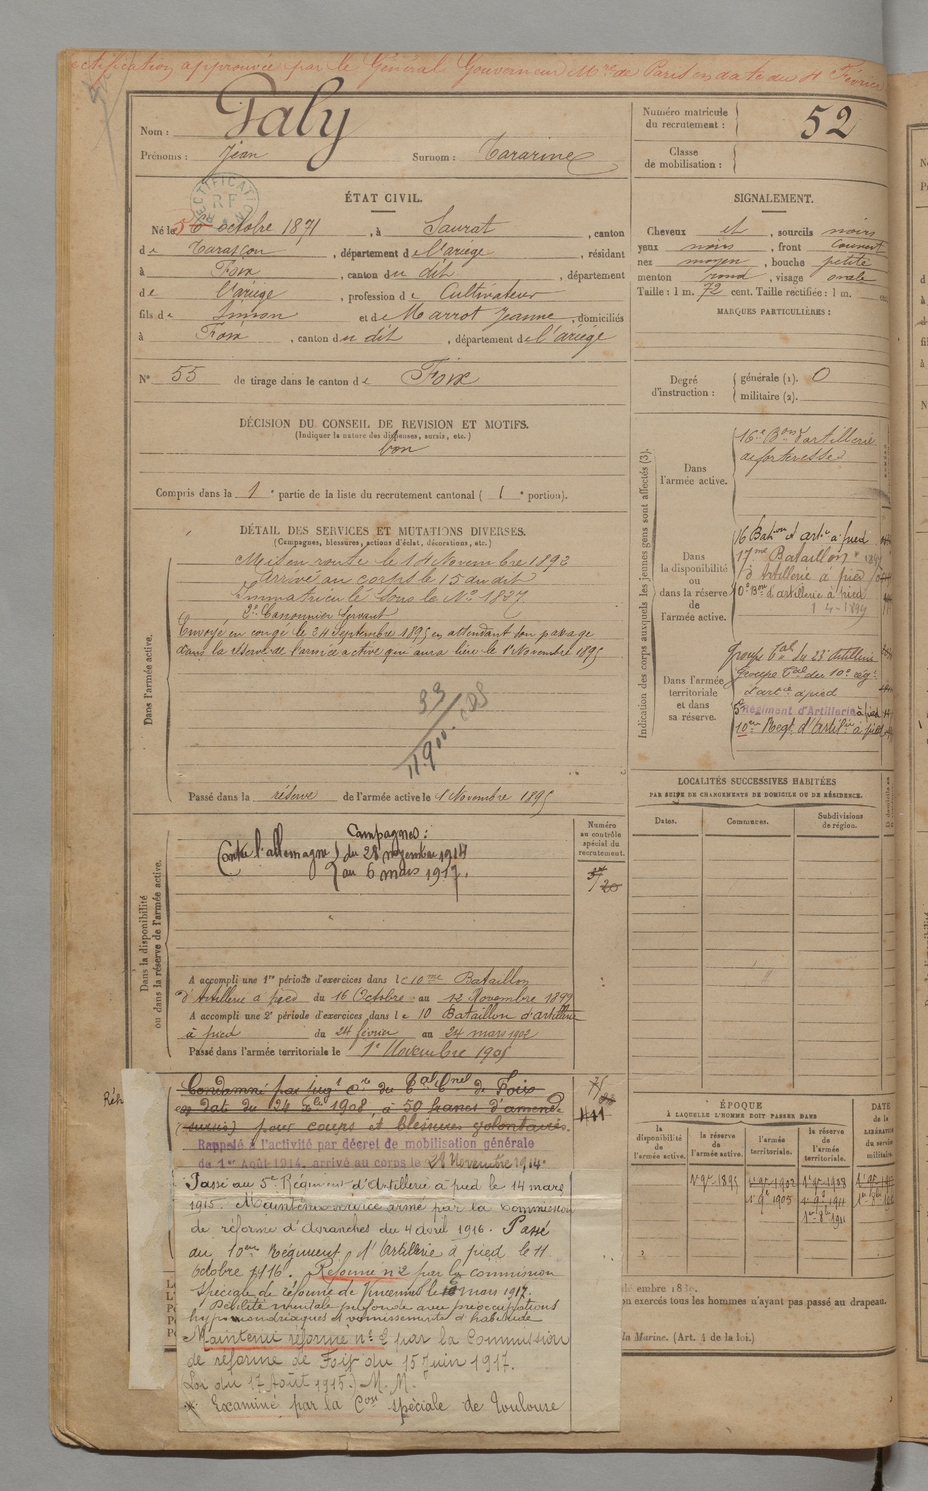 ctification approuvée par le Général Gouverneur Mre de Paris en date du 11 Février
Nom : Paly
Prénoms : Jean Surnom : Tararine
Numéro matricule du recrutement : 52
Classe de mobilisation :
RECTIFICATION
RF
ÉTAT CIVIL.
Né le 5 octobre 1871, à Saurat, canton
de Tarascon, département de l'ariège, résidant
à Foix, canton du dit, département
de l'ariège, profession de Cultivateur
fils de Simon et de Marrot Jeanne, domiciliés
à Foix, canton du dit, département de l'ariège
N° 55 de tirage dans le canton de Foix
SIGNALEMENT.
Cheveux et, sourcils noirs
yeux noirs, front couvert
nez moyen, bouche petite
menton rond, visage ovale
Taille : 1 m. 72 cent. Taille rectifiée : 1 m.
MARQUES PARTICULIÈRES :
Degré d'instruction : générale (1). 0
militaire (2).
DÉCISION DU CONSEIL DE REVISION ET MOTIFS.
(Indiquer la nature des dispenses, sursis, etc.)
bon
Compris dans la 1e partie de la liste du recrutement cantonal ( 1e portion).
Indication des corps auxquels les jeunes gens sont affectés (3).
Dans l'armée active.
16e Bon d'artillerie
de forteresse
Dans la disponibilité ou dans la réserve de l'armée active.
16 Bation d'artie à pied
17me Bataillon
d'Artillerie à pied
10e Bon d'artillerie à pied
1-4-1899
Dans l'armée territoriale et dans sa réserve.
Groupe tal du 23e Artillerie
Groupe tal du 10e rég
d'artie à pied
5e Régiment d'Artillerie à pied
10em Regt d'Artilie à pied
DÉTAIL DES SERVICES ET MUTATIONS DIVERSES.
(Campagnes, blessures, actions d'éclat, décorations, etc.)
Dans l'armée active.
Mis en route le 14 Novembre 1892
Arrivé au corps le 15 du dit
Immatriculé sous le No 1827
2e Canonnier Servant
Envoyé en congé le 24 Septembre 1895 en attendant son passage
dans la réserve de l'armée active qui aura lieu le 1 Novembre 1895
Passé dans la réserve de l'armée active le 1 Novembre 1895
LOCALITÉS SUCCESSIVES HABITÉES
PAR SUITE DE CHANGEMENTS DE DOMICILE OU DE RÉSIDENCE.
Dates. Communes. Subdivisions de région.
Dans la disponibilité ou dans la réserve de l'armée active.
Numéro au contrôle spécial du recrutement.
Campagnes :
Contre l'allemagne du 28 novembre 1914
au 6 mars 1917.
A accompli une 1re période d'exercices dans le 10me Bataillon
d'Artillerie à pied du 16 Octobre au 12 Novembre 1899
A accompli une 2e période d'exercices dans le 10 Bataillon d'artillerie
à pied du 24 février au 24 mars 1902
Passé dans l'armée territoriale le 1e Novembre 1905
Réh
Condamné par jugt cre du Tal Cnel de Foix
en date du 24 1908, à 50 francs d'amende
(sursis) pour coups et blessures volontaires.
Rappelé à l'activité par décret de mobilisation générale
du 1er Août 1914, arrivé au corps le 28 Novembre 1914
Passé au 5e Régiment d'Artillerie à pied le 14 mars
1915. Maintenu service armé par la Commission
de réforme d'Avranches du 4 avril 1916. Passé
au 10em Régiment d'Artillerie à pied le 11
octobre 1916. Réformé n° 2 par la commission
spéciale de réforme de Vincennes le 6 mars 1917.
Débilité mentale profonde avec préoccupations
hypocondriaques et vomissements d'habitude
Maintenu réformé n° 2 par la Commission
de réforme de Foix du 15 Juin 1917.
Loi du 17 Août 1915.) M. M.
Examiné par la Con spéciale de Toulouse
ÉPOQUE
À LAQUELLE L'HOMME DOIT PASSER DANS
la disponibilité de l'armée active. la réserve de l'armée active. l'armée territoriale. la réserve de l'armée territoriale.
DATE de la LIBÉRATION du service militaire.
1 9bre 1895
1 9bre 1905
1 9bre 1911
exercés tous les hommes n'ayant pas passé au drapeau.
la Marine. (Art. 1 de la loi.)